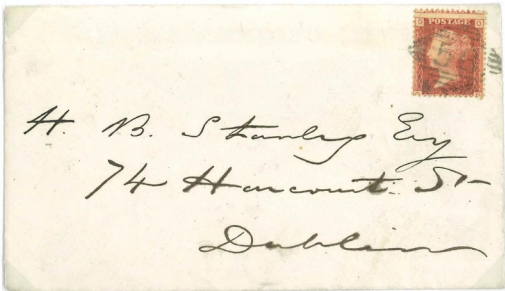 POSTAGE
H. B. Stanley Esq
74 Harcourt St
Dublin